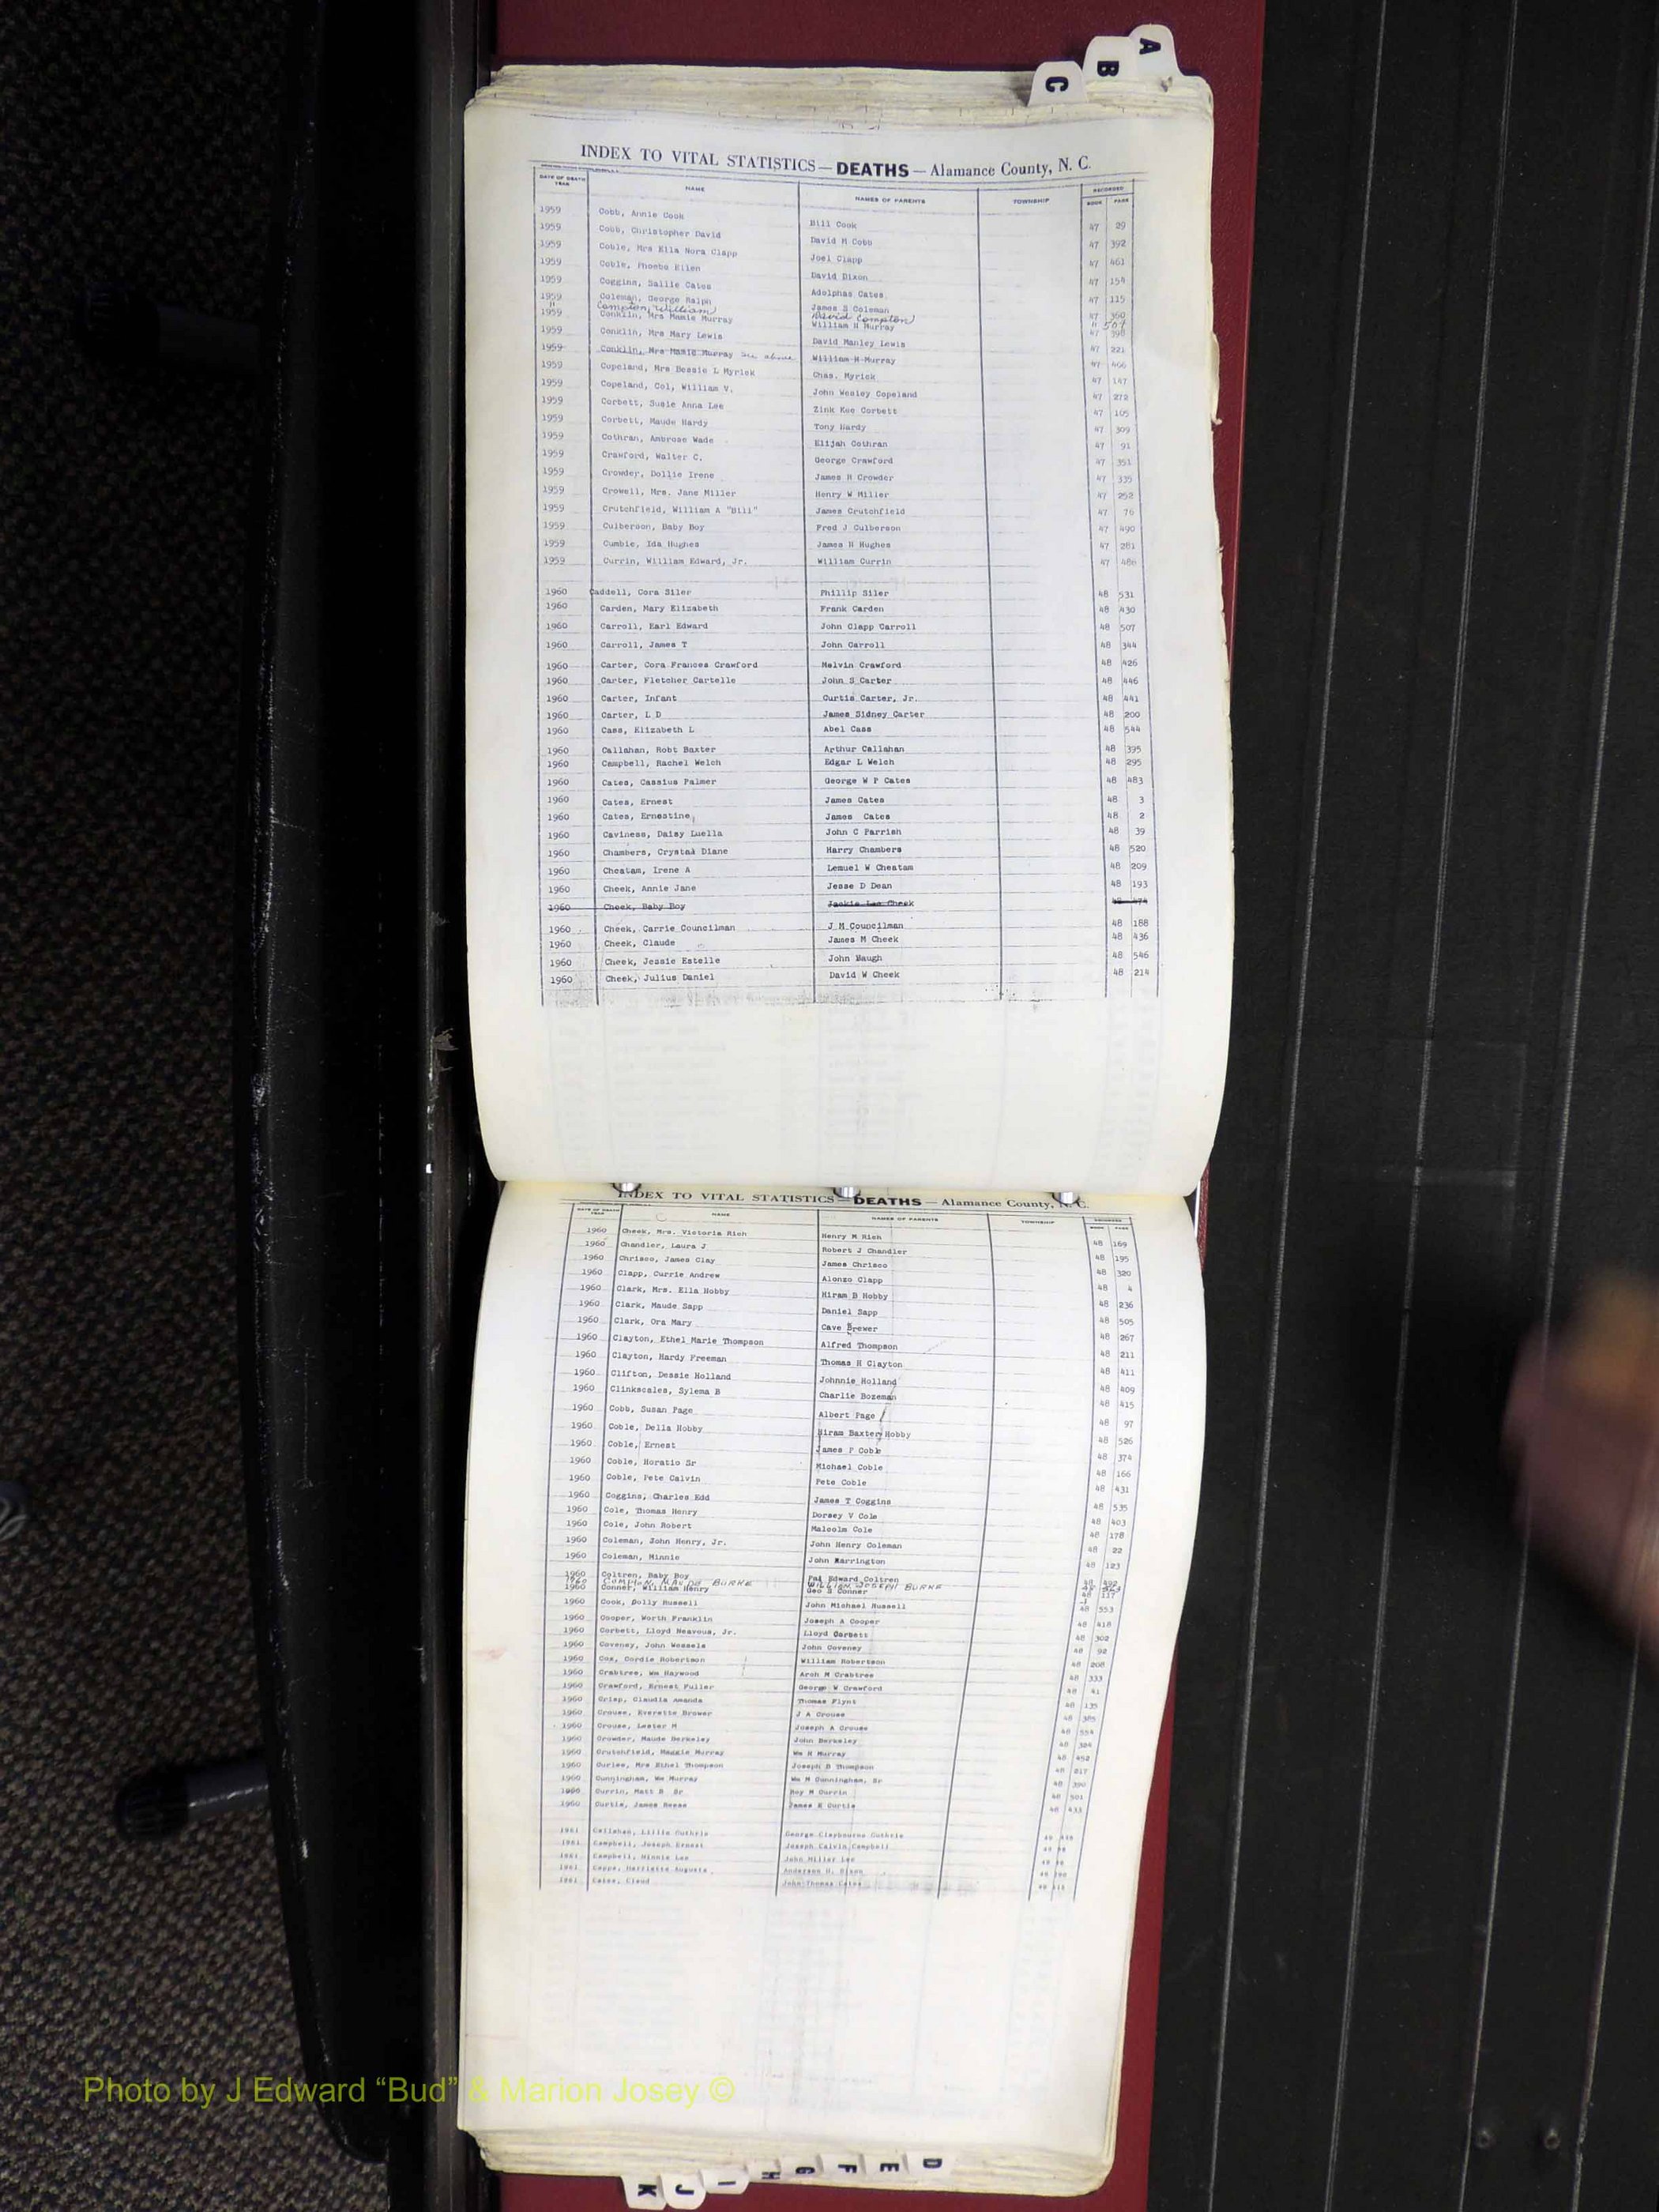 A
B
C
INDEX TO VITAL STATISTICS — DEATHS — Alamance County, N. C.
DATE OF DEATH YEAR NAME NAMES OF PARENTS TOWNSHIP RECORDED BOOK PAGE
1959 Cobb, Annie Cook Bill Cook 47 29
1959 Cobb, Christopher David David M Cobb 47 392
1959 Coble, Mrs Ella Nora Clapp Joel Clapp 47 461
1959 Coble, Phoebe Ellen David Dixon 47 154
1959 Coggins, Sallie Cates Adolphas Cates 47 115
1959 Coleman, George Ralph James S Coleman 47 360
" Compton, William David Compton " 504
1959 Conklin, Mrs Mamie Murray William H Murray 47 398
1959 Conklin, Mrs Mary Lewis David Manley Lewis 47 221
1959 Conklin, Mrs Mamie Murray see above William H Murray 47 466
1959 Copeland, Mrs Bessie L Myrick Chas. Myrick 47 147
1959 Copeland, Col, William V. John Wesley Copeland 47 272
1959 Corbett, Susie Anna Lee Zink Kee Corbett 47 105
1959 Corbett, Maude Hardy Tony Hardy 47 309
1959 Cothran, Ambrose Wade Elijah Cothran 47 91
1959 Crawford, Walter C. George Crawford 47 351
1959 Crowder, Dollie Irene James H Crowder 47 335
1959 Crowell, Mrs. Jane Miller Henry W Miller 47 252
1959 Crutchfield, William A "Bill" James Crutchfield 47 76
1959 Culberson, Baby Boy Fred J Culberson 47 490
1959 Cumbie, Ida Hughes James N Hughes 47 281
1959 Currin, William Edward, Jr. William Currin 47 486
1960 Caddell, Cora Siler Phillip Siler 48 531
1960 Carden, Mary Elizabeth Frank Carden 48 430
1960 Carroll, Earl Edward John Clapp Carroll 48 507
1960 Carroll, James T John Carroll 48 344
1960 Carter, Cora Frances Crawford Melvin Crawford 48 426
1960 Carter, Fletcher Cartelle John S Carter 48 446
1960 Carter, Infant Curtis Carter, Jr. 48 441
1960 Carter, L D James Sidney Carter 48 200
1960 Cass, Elizabeth L Abel Cass 48 544
1960 Callahan, Robt Baxter Arthur Callahan 48 395
1960 Campbell, Rachel Welch Edgar L Welch 48 295
1960 Cates, Cassius Palmer George W P Cates 48 483
1960 Cates, Ernest James Cates 48 3
1960 Cates, Ernestine James Cates 48 2
1960 Caviness, Daisy Luella John C Parrish 48 39
1960 Chambers, Crystal Diane Harry Chambers 48 520
1960 Cheatam, Irene A Lemuel W Cheatam 48 209
1960 Cheek, Annie Jane Jesse D Dean 48 193
1960 Cheek, Baby Boy Jackie Lee Cheek 48 474
1960 Cheek, Carrie Councilman J M Councilman 48 188
1960 Cheek, Claude James M Cheek 48 436
1960 Cheek, Jessie Estelle John Maugh 48 546
1960 Cheek, Julius Daniel David W Cheek 48 214
INDEX TO VITAL STATISTICS — DEATHS — Alamance County, N. C.
DATE OF DEATH YEAR NAME NAMES OF PARENTS TOWNSHIP RECORDED BOOK PAGE
1960 Cheek, Mrs. Victoria Rich Henry M Rich 48 169
1960 Chandler, Laura J Robert J Chandler 48 195
1960 Chrisco, James Clay James Chrisco 48 320
1960 Clapp, Currie Andrew Alonzo Clapp 48 4
1960 Clark, Mrs. Ella Hobby Hiram B Hobby 48 236
1960 Clark, Maude Sapp Daniel Sapp 48 505
1960 Clark, Ora Mary Cave Brewer 48 267
1960 Clayton, Ethel Marie Thompson Alfred Thompson 48 211
1960 Clayton, Hardy Freeman Thomas H Clayton 48 411
1960 Clifton, Dessie Holland Johnnie Holland 48 409
1960 Clinkscales, Sylema B Charlie Bozeman 48 415
1960 Cobb, Susan Page Albert Page 48 97
1960 Coble, Della Hobby Hiram Baxter Hobby 48 526
1960 Coble, Ernest James P Coble 48 374
1960 Coble, Horatio Sr Michael Coble 48 166
1960 Coble, Pete Calvin Pete Coble 48 431
1960 Coggins, Charles Edd James T Coggins 48 535
1960 Cole, Thomas Henry Dorsey V Cole 48 403
1960 Cole, John Robert Malcolm Cole 48 178
1960 Coleman, John Henry, Jr. John Henry Coleman 48 22
1960 Coleman, Minnie John Harrington 48 123
1960 Coltren, Baby Boy Pal Edward Coltren 48 492
1960 COMPTON, MAUDE BURKE WILLIAM JOSEPH BURKE 48
1960 Conner, William Henry Geo S Conner 48 117
1960 Cook, Dolly Russell John Michael Russell 48 553
1960 Cooper, Worth Franklin Joseph A Cooper 48 418
1960 Corbett, Lloyd Neavous, Jr. Lloyd Corbett 48 302
1960 Coveney, John Wessels John Coveney 48 92
1960 Cox, Cordie Robertson William Robertson 48 208
1960 Crabtree, Wm Haywood Arch M Crabtree 48 333
1960 Crawford, Ernest Fuller George W Crawford 48 41
1960 Crisp, Claudia Amanda Thomas Flynt 48 135
1960 Crouse, Everette Brower J A Crouse 48 385
1960 Crouse, Lester M Joseph A Crouse 48 554
1960 Crowder, Maude Berkeley John Berkeley 48 324
1960 Crutchfield, Maggie Murray Wm H Murray 48 452
1960 Curlee, Mrs Ethel Thompson Joseph B Thompson 48 217
1960 Cunningham, Wm Murray Wm M Cunningham, Sr 48 390
1960 Currin, Matt B Sr Roy M Currin 48 501
1960 Curtis, James Reese James K Curtis 48 433
1961 Callahan, Lillie Guthrie George Claybourne Guthrie 49
1961 Campbell, Joseph Ernest Joseph Calvin Campbell 49
1961 Campbell, Minnie Lee John Miller Lee 49
1961 Capps, Harriette Augusta Anderson H. Dixon 49
1961 Cates, Cloud John Thomas Cates 49
Photo by J Edward “Bud” & Marion Josey ©
D
E
F
G
H
I
J
K